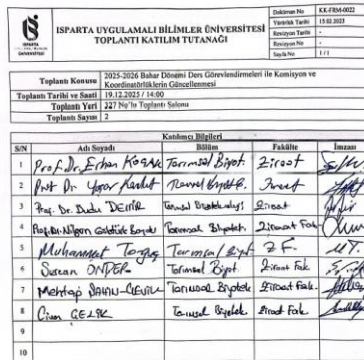 ISPARTA
UYGULAMALI BİLİMLER
ÜNİVERSİTESİ
ISPARTA UYGULAMALI BİLİMLER ÜNİVERSİTESİ
TOPLANTI KATILIM TUTANAĞI
Doküman No KK-FRM-0022
Yürürlük Tarihi 15.02.2023
Revizyon Tarihi -
Revizyon No -
Sayfa No 1/1
Toplantı Konusu 2025-2026 Bahar Dönemi Ders Görevlendirmeleri ile Komisyon ve
Koordinatörlüklerin Güncellenmesi
Toplantı Tarihi ve Saati 19.12.2025 / 14:00
Toplantı Yeri 227 No'lu Toplantı Salonu
Toplantı Sayısı 2
Katılımcı Bilgileri
S/N Adı Soyadı Bölüm Fakülte İmzası
1 Prof. Dr. Erhan Tarımsal Biyot. Ziraat
2 Prof. Dr. Yaşar Ziraat
3 Prof. Dr. Dudu DEMİR Tarımsal Biyoteknoloji Ziraat
4 Prof. Dr. Nilgün Tarımsal Biyotek. Ziraat Fak.
5 Muhammet Tarımsal Biyt Z.F.
6 ÖNDER Tarımsal Biyot. Ziraat Fak.
7 Mehtap Tarımsal Biyotek Ziraat Fak.
8 ÇELİK Tarımsal Biyotek Ziraat Fak.
9
10